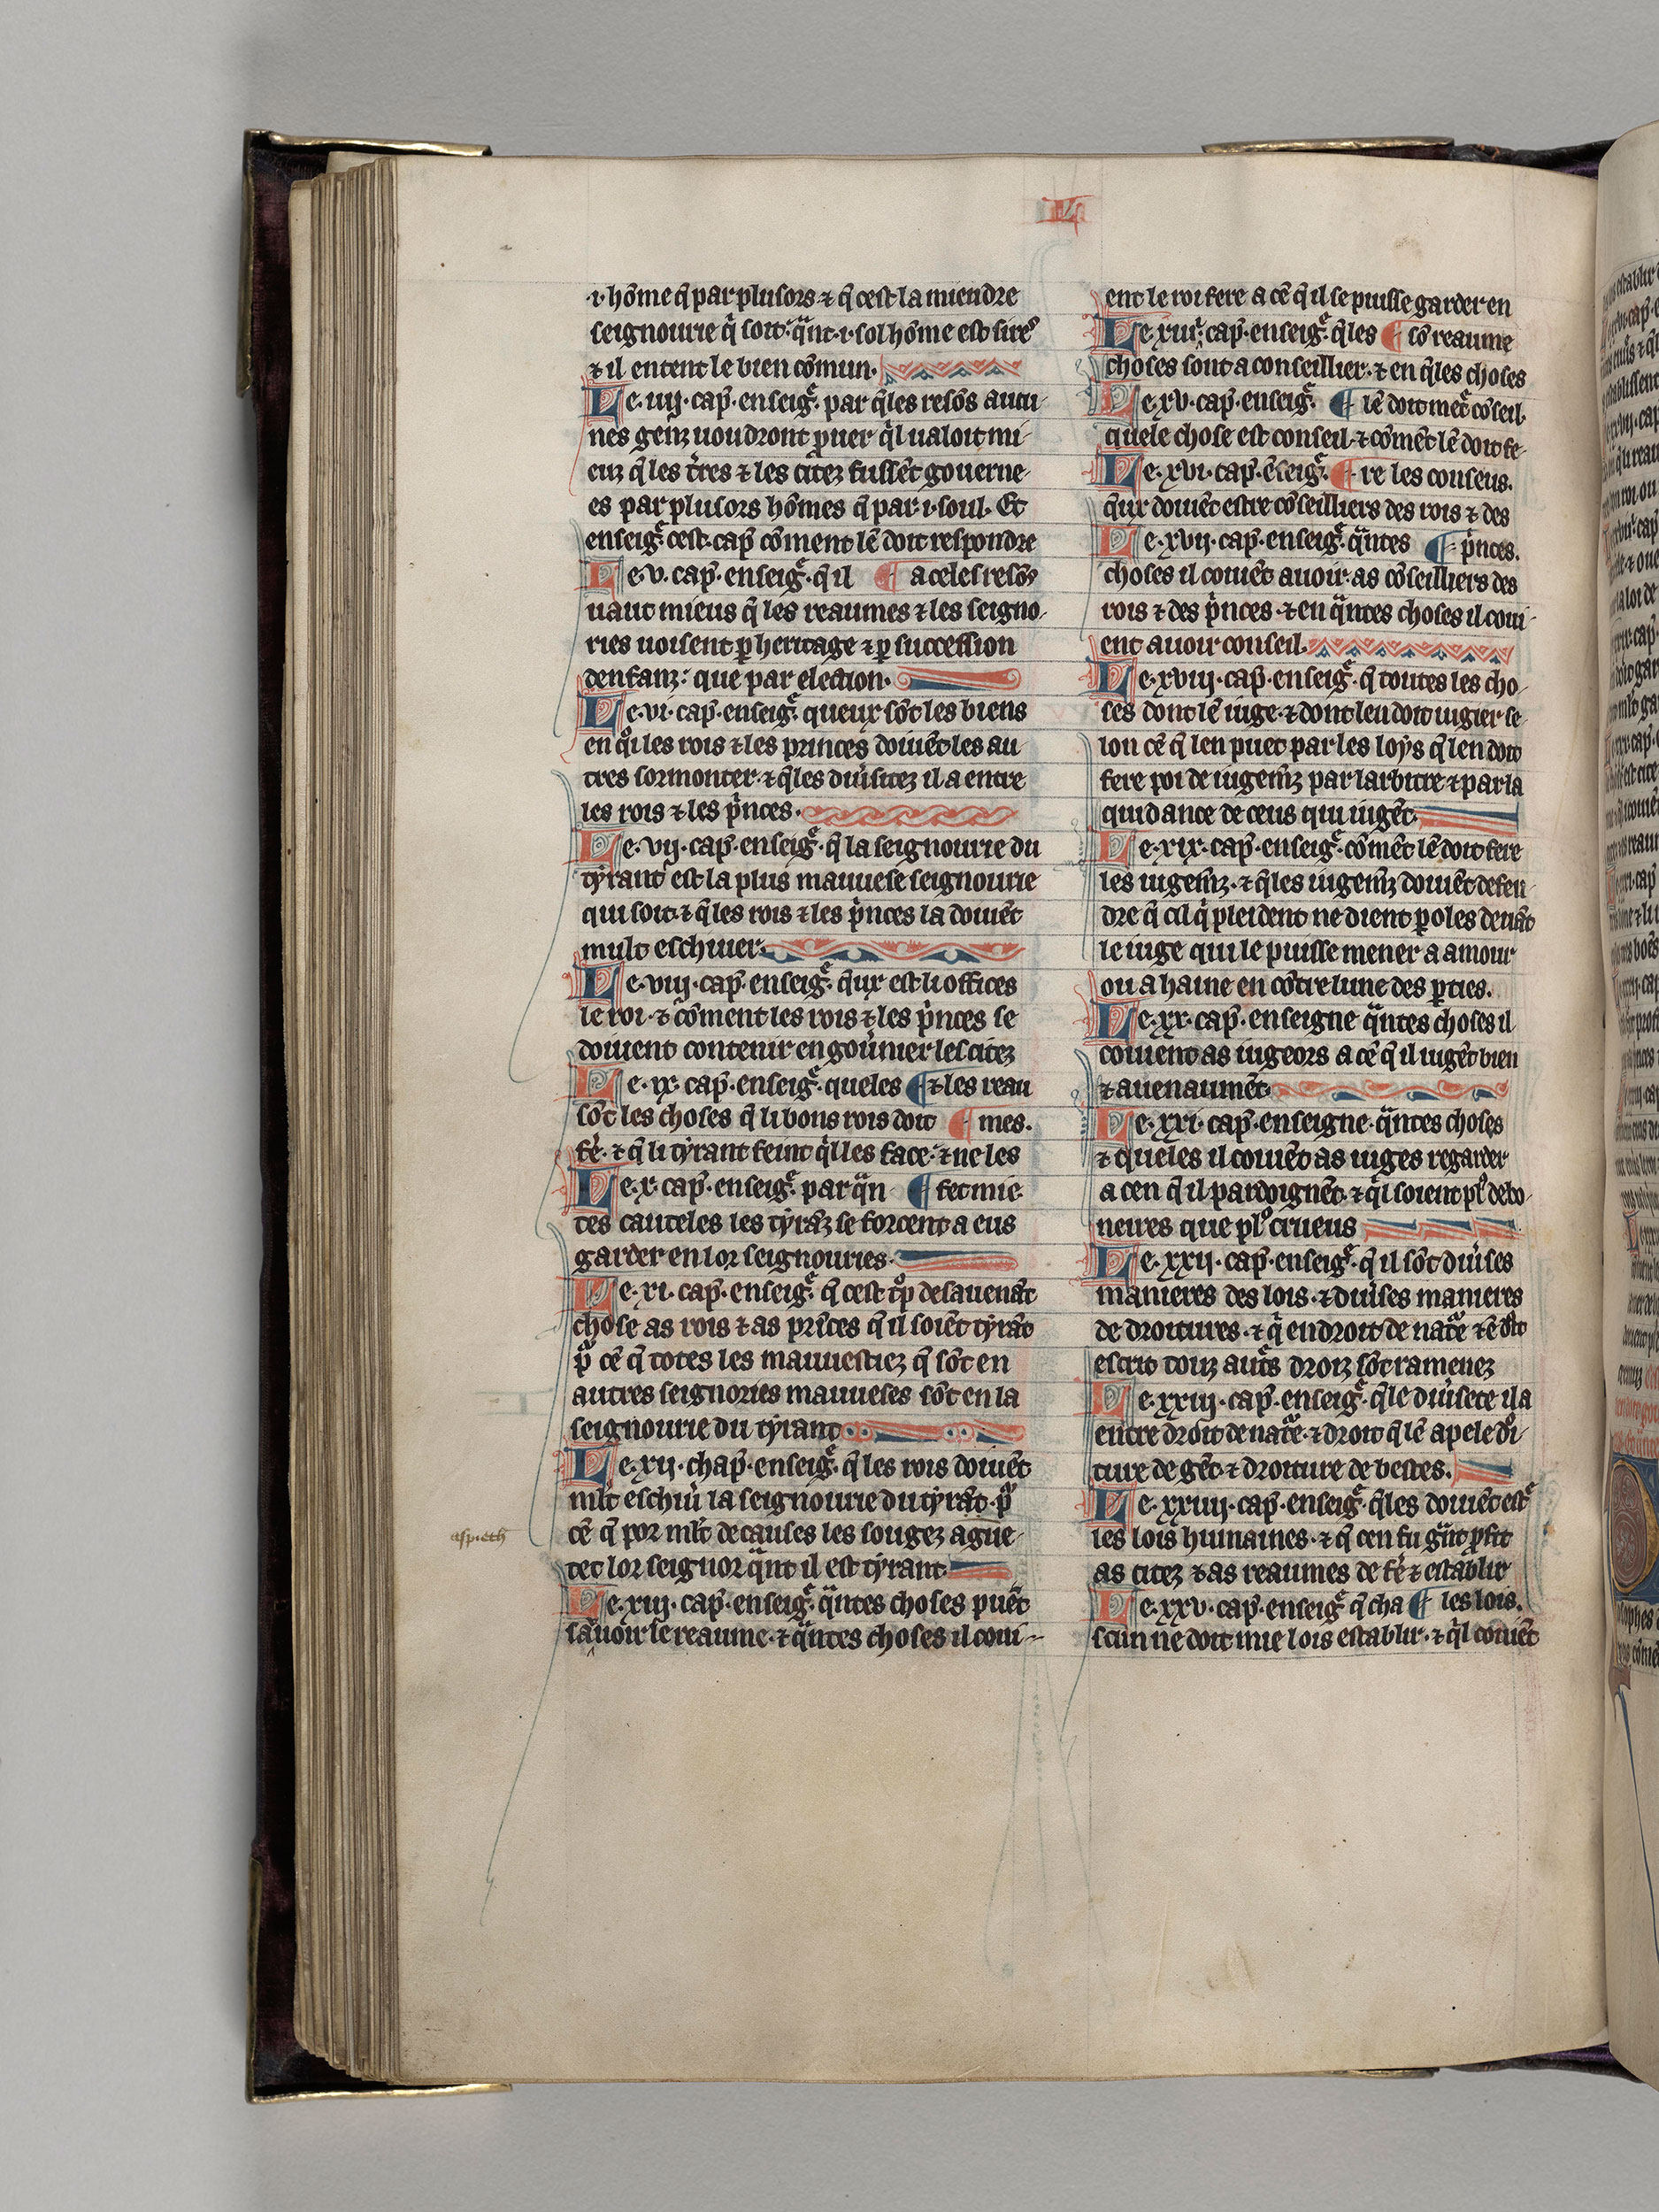 L
.i. hõme q̃ par plusors ⁊ q̃ cest la miendre
seignourie q̾ soit. q̃nt .i. sol hõme est sire
⁊ il entent le bien cõmun.
Le .iiij. cap̃. enseig̃. par q̃les resõs aucu
nes genz uoudront ꝓuer q̾l ualoit mi
euz q̃ les t̾res ⁊ les citez fussẽt gouerne
es par plusors hõmes q̃ par .i. soul. Et
enseig̃ cest cap̃ cõment lẽ doit respondre
Le .v. cap̃. enseig̃. q̃ il ¶ a celes resõs
uaut mieus q̃ les reaumes ⁊ les seigno
ries uoisent ꝑ heritage ⁊ ꝑ succession
denfanz: que par election.
Le .vi. cap̃. enseig̃. queux sõt les biens
en q̾i les rois ⁊ les princes doiuẽt les au
tres sormonter. ⁊ q̃les diu̾sitez il a entre
les rois ⁊ les p̾nces.
Le .vij. cap̃. enseig̃. q̃ la seignourie du
tyrant est la plus mauuese seignourie
qui soit. ⁊ q̃ les rois ⁊ les p̾nces la doiuẽt
mult eschiuer.
Le .viij. cap̃. enseig̃. q̃ux est li offices
le roi. ⁊ cõment les rois ⁊ les p̾nces se
doiuent contenir en gou̾nier les citez
Le .ix. cap̃. enseig̃. queles ¶ ⁊ les reau
sõt les choses q̃ li bons rois doit ¶ mes.
fe̾. ⁊ q̃ li tyrant feint q̾l les face. ⁊ ne les
Le .x. cap̃. enseig̃. par q̃n ¶ fet mie.
tes cauteles les tyrãz se forcent a eus
garder en lor seignouries.
Le .xi. cap̃. enseig̃. q̃ cest t̾p desauenãt
chose as rois ⁊ as prĩces q̃ il soiẽt tyrãt
p̾ cẽ q̃ totes les mauuestiez q̃ sõt en
autres seignories mauueses sõt en la
seignourie du tyrant
Le .xij. chap̃. enseig̃. q̃ les rois doiuẽt
ml̃t eschiu̾ la seignourie du tyrãt. p̾
cẽ q̃ por ml̃t de causes les sougez ague
tet lor seignor q̃nt il est tyrant.
Le .xiij. cap̃. enseig̃. q̃ntes choses puẽt
sauuoir le reaume. ⁊ q̃ntes choses il coui
asp. eth
ent le roi fere a cẽ q̃ il se puisse garder en
Le .xiiij. cap̃. enseig̃. q̃les ¶ sõ reaume
choses sont a conseillier. ⁊ en q̃les choses
Le .xv. cap̃. enseig̃. ¶ lẽ doit met̾ cõseil.
quele chose est conseil. ⁊ cõmẽt lẽ doit fe
Le .xvi. cap̃. ẽseig̃. ¶ re les conseus.
q̃ux doiuẽt estre cõseilliers des rois ⁊ des
Le .xvij. cap̃. enseig̃. q̃ntes ¶ p̾nces.
choses il couiẽt auoir as cõseilliers des
rois ⁊ des p̾nces. ⁊ en q̃ntes choses il coui
ent auoir conseil.
Le .xviij. cap̃. enseig̃. q̃ toutes les cho
ses dont lẽ iuge. ⁊ dont len doit iugier se
lon cẽ q̃ len puet par les loys q̃ len doit
fere poi de iugem̃z par larbitre ⁊ par la
quidance de ceus qui iugẽt.
Le .xix. cap̃. enseig̃. cõmẽt lẽ doit fere
les iugem̃z. ⁊ q̃les iugem̃z doiuẽt defen
dre q̃ cil q̾ pleident ne dient ꝑoles deuãt
le iuge qui le puisse mener a amour
ou a haine en cõtre lune des ꝑties.
Le .xx. cap̃. enseigne q̃ntes choses il
couient as iugeors a cẽ q̃ il iugẽt bien
⁊ auenaumẽt.
Le .xxi. cap̃. enseigne. q̃ntes choses
⁊ queles il couiẽt as iuges regarder
a cen q̃ il pardoignẽt. ⁊ q̾l soient pl᷒ debo
neires que pl᷒ crueus
Le .xxij. cap̃. enseig̃. q̃ il sõt diu̾ses
manieres des lois. ⁊ diu̾ses manieres
de droitures. ⁊ q̃ en droit de nat̾e ⁊ ẽ dõit
escrit touz aut̾s droiz sõt ramenez
Le .xxiij. cap̃. enseig̃. q̃le diu̾sete il a
entre droit de nat̾e. ⁊ droit q̃ lẽ apele d̾oi
ture de gẽt. ⁊ droiture de bestes.
Le .xxiiij. cap̃. enseig̃. q̃les doiuẽt est̾
les lois humaines. ⁊ q̃ cen fu g̃nt ꝓfit
as citez ⁊ as reaumes de fe̾ ⁊ establir
Le .xxv. cap̃. enseig̃ q̃ cha ¶ les lois.
scun ne doit mie lois establir. ⁊ q̾l couiẽt